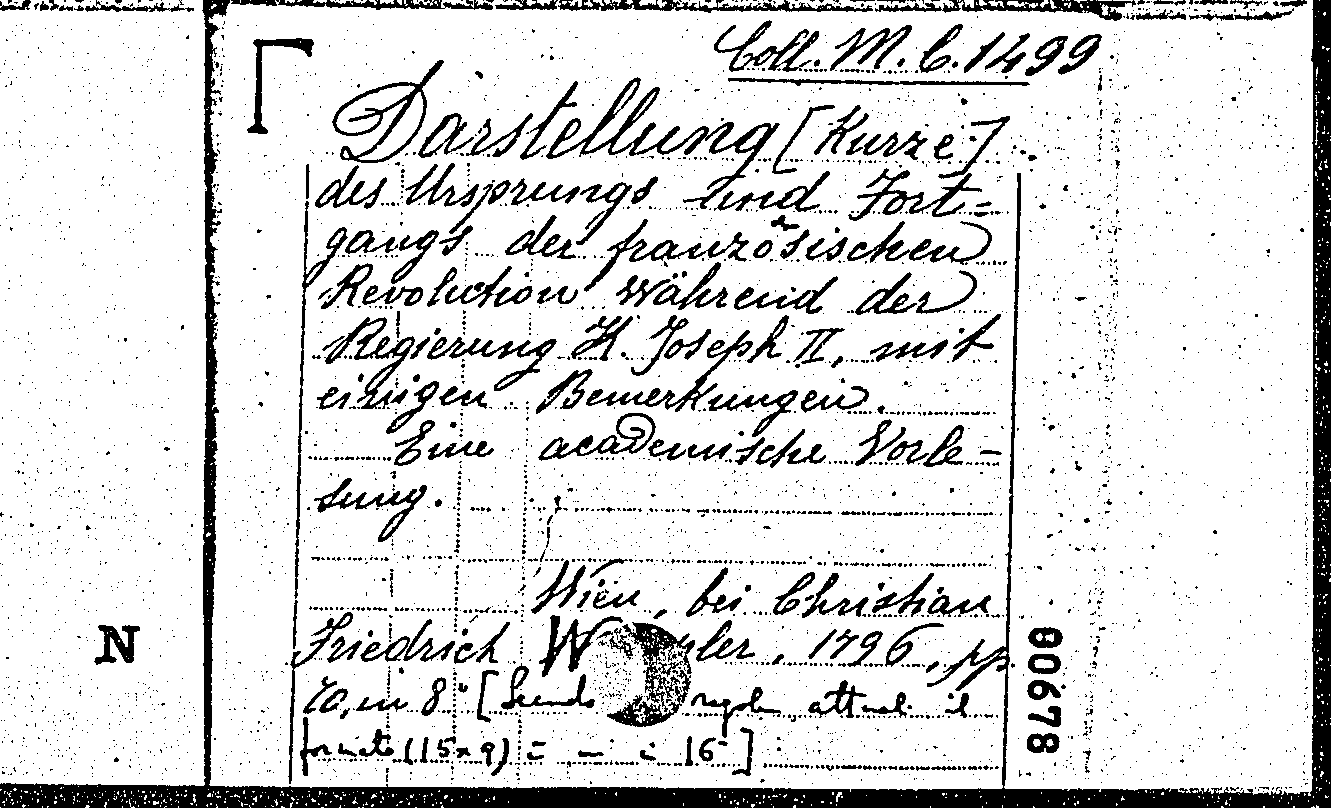 Coll. M. C. 1499
Darstellung [Kurze]
des Ursprungs und Fort=
gangs der französischen
Revolution während der
Regierung K. Joseph II, mit
einigen Bemerkungen.
Eine academische Vorle-
sung.
Wien, bei Christian
Friedrich W ler, 1796, pp.
70, in 8° [ attual. il
formato (15x9) = in 16°]
N
87908